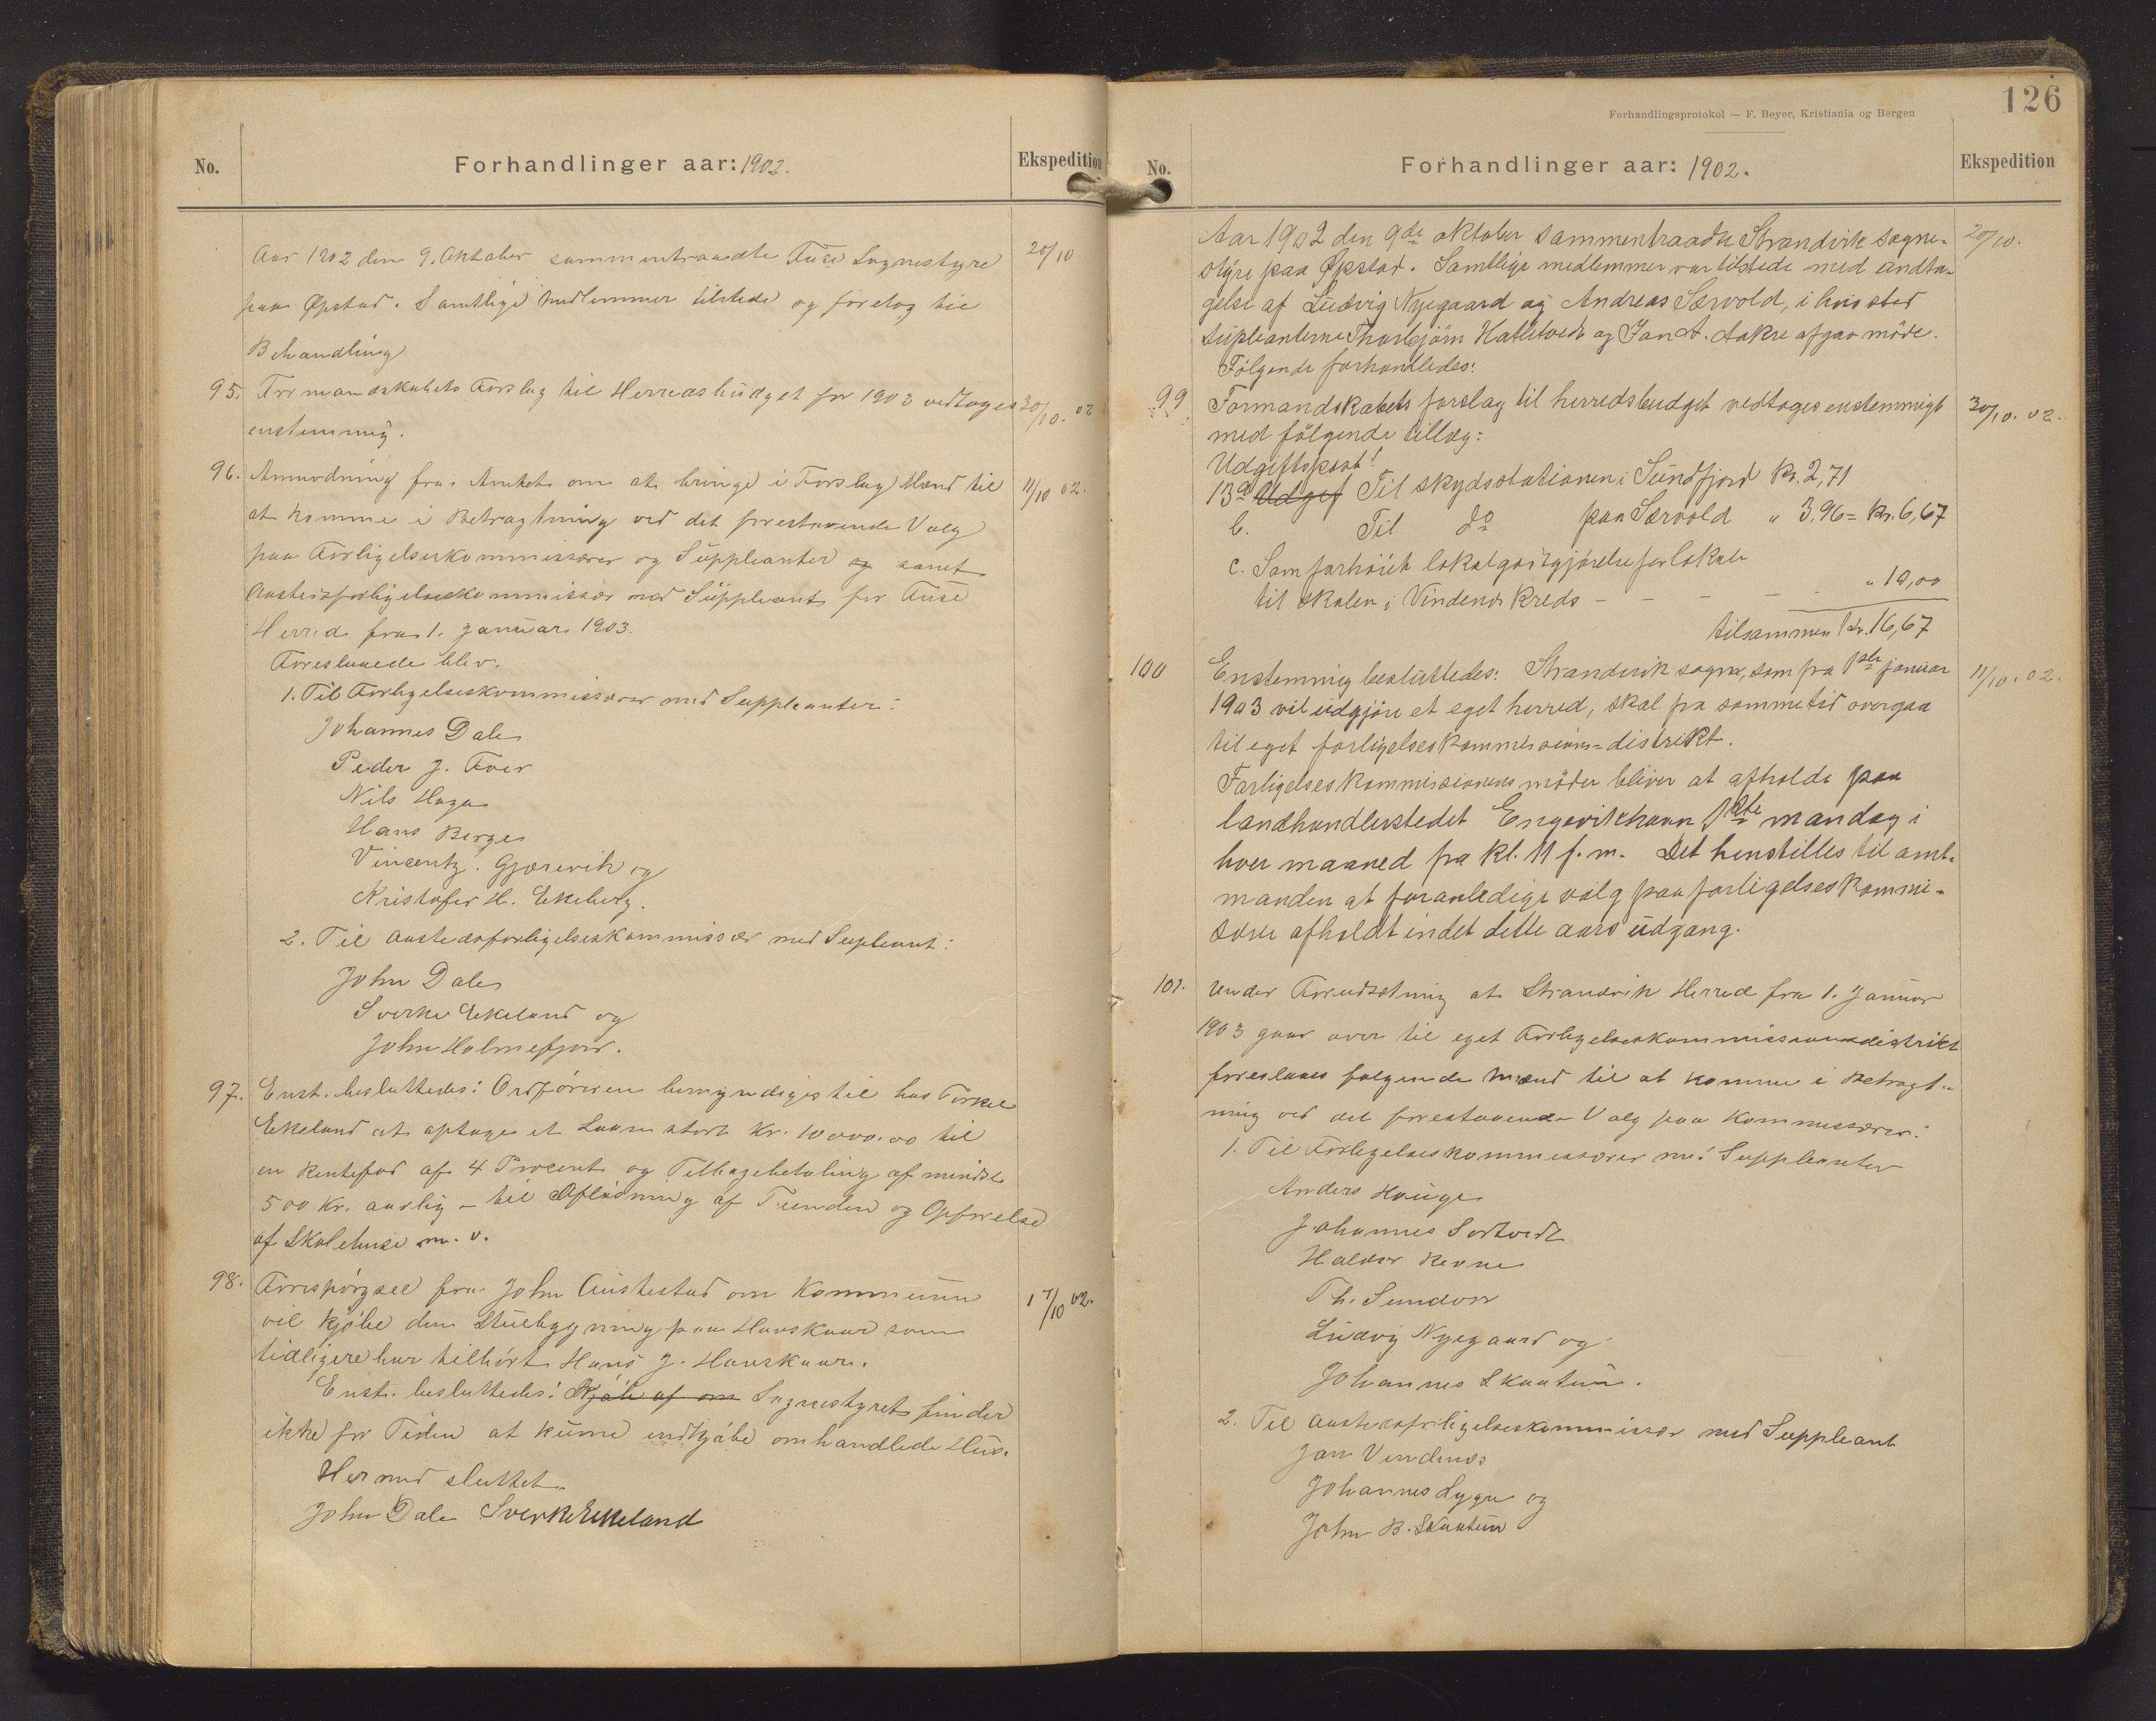 No.
Forhandlinger aar: 1902.
Ekspedition
Aar 1902 den 9. Oktober sammentraadte Fuse Sognestyre
paa Øpstad. Samtlige Medlemmer tilstede og foretog til
Behandling
20/10
95. Formandskabets Forslag til Herredsbudget for 1903 vedtoges
enstemmig.
30/10. 02
96. Anmodning fra Amtet om at bringe i Forslag Mænd til
at komme i Betragtning ved det forestaaende Valg
paa Forligelseskommissærer og Suppleanter og samt
Austedsforligelseskommissær med Suppleant for Fuse
Herred fra 1. Januar 1903.
11/10 02.
Foreslaaede blev.
1. Til Forligelseskommissærer med Suppleanter:
Johannes Dale
Peder J. Awer
Nils Haga
Hans Berge
Vincentz. Gjærevik og
Kristofer H. Ekeberg.
2. Til Austedsforligelseskommissær med Supleant:
John Dale
Sverke Ekeland og
John Holmefjord.
97. Enst. besluttedes: Ordføreren bemyndiges til hos Torkel
Ekeland at optage et Laan stort Kr. 10000.00 til
en Rentefod af 4 Procent og Tilbagebetaling af mindst
500 Kr. aarlig – til Afløsning af Tienden og Opførelse
af Skolehuse m. v.
98. Forespørgsel fra John Austestad om Kommunen
vil kjøbe den Stuebygning paa Havskaar som
tidligere har tilhørt Hans J. Havskaar.
17/10 02.
Enst. besluttedes: Kjøb af om Sognestyret finder
ikke for Tiden at kunne indkjøbe omhandlede Hus.
Hermed sluttet.
John Dale Sverke Ekeland
126
Forhandlingsprotokol — F. Beyer, Kristiania og Bergen
No.
Forhandlinger aar: 1902.
Ekspedition
Aar 1902 den 9de oktober sammentraadte Strandvik sogne-
styre paa Øpstad. Samtlige medlemmer var tilstede med undta-
gelse af Ludvig Nygaard og Andreas Særvold, i hvis sted
supleanterne Thorbjørn Hatletvedt og Jan A. Aakre afgav møde.
Følgende forhandledes:
20/10.
99 Formandskabets forslag til herredsbudget vedtoges enstemmigt
med følgende tillæg:
30/10. 02.
Udgiftspost!
13a Udgif Til skydsstationen i Sundfjord Kr. 2,71
b. Til do paa Særvold " 3,96 = Kr. 6,67
c. Som forhøiet lokalgodtgjørelse for lokale
til skolen i Vindenes Kreds – – – – – " 10,00
tilsammen Kr. 16,67
100 Enstemmig besluttedes: Strandvik sogn, som fra 1ste januar
1903 vil udgjøre et eget herred, skal fra sammetid overgaa
til eget forligelseskommisions-distrikt.
11/10. 02.
Forligelseskommissionens møder bliver at afholde paa
landhandlerstedet Engevikhavn 1ste mandag i
hver maaned fra kl. 11 f. m. Det henstilles til amt-
manden at foranledige valg paa forligelseskommi-
særer afholdt indet dette aars udgang.
101. Under Forudsætning at Strandvik Herred fra 1. Januar
1903 gaar over til eget Forligelseskommissionsdistrikt
foreslaaes følgende Mænd til at komme i Betragt-
ning ved det forestaaende Valg paa Kommissærer:
1. Til Forligelseskommissærer med Suppleanter
Anders Hauge
Johannes Sortvedt
Haldor Revne
Th. Sundvor
Ludvig Nygaard og
Johannes Skaatun.
2. Til Austedsforligelseskommissær med Suppleant
Jan Vindenes
Johannes Lygre og
John B. Skaatun